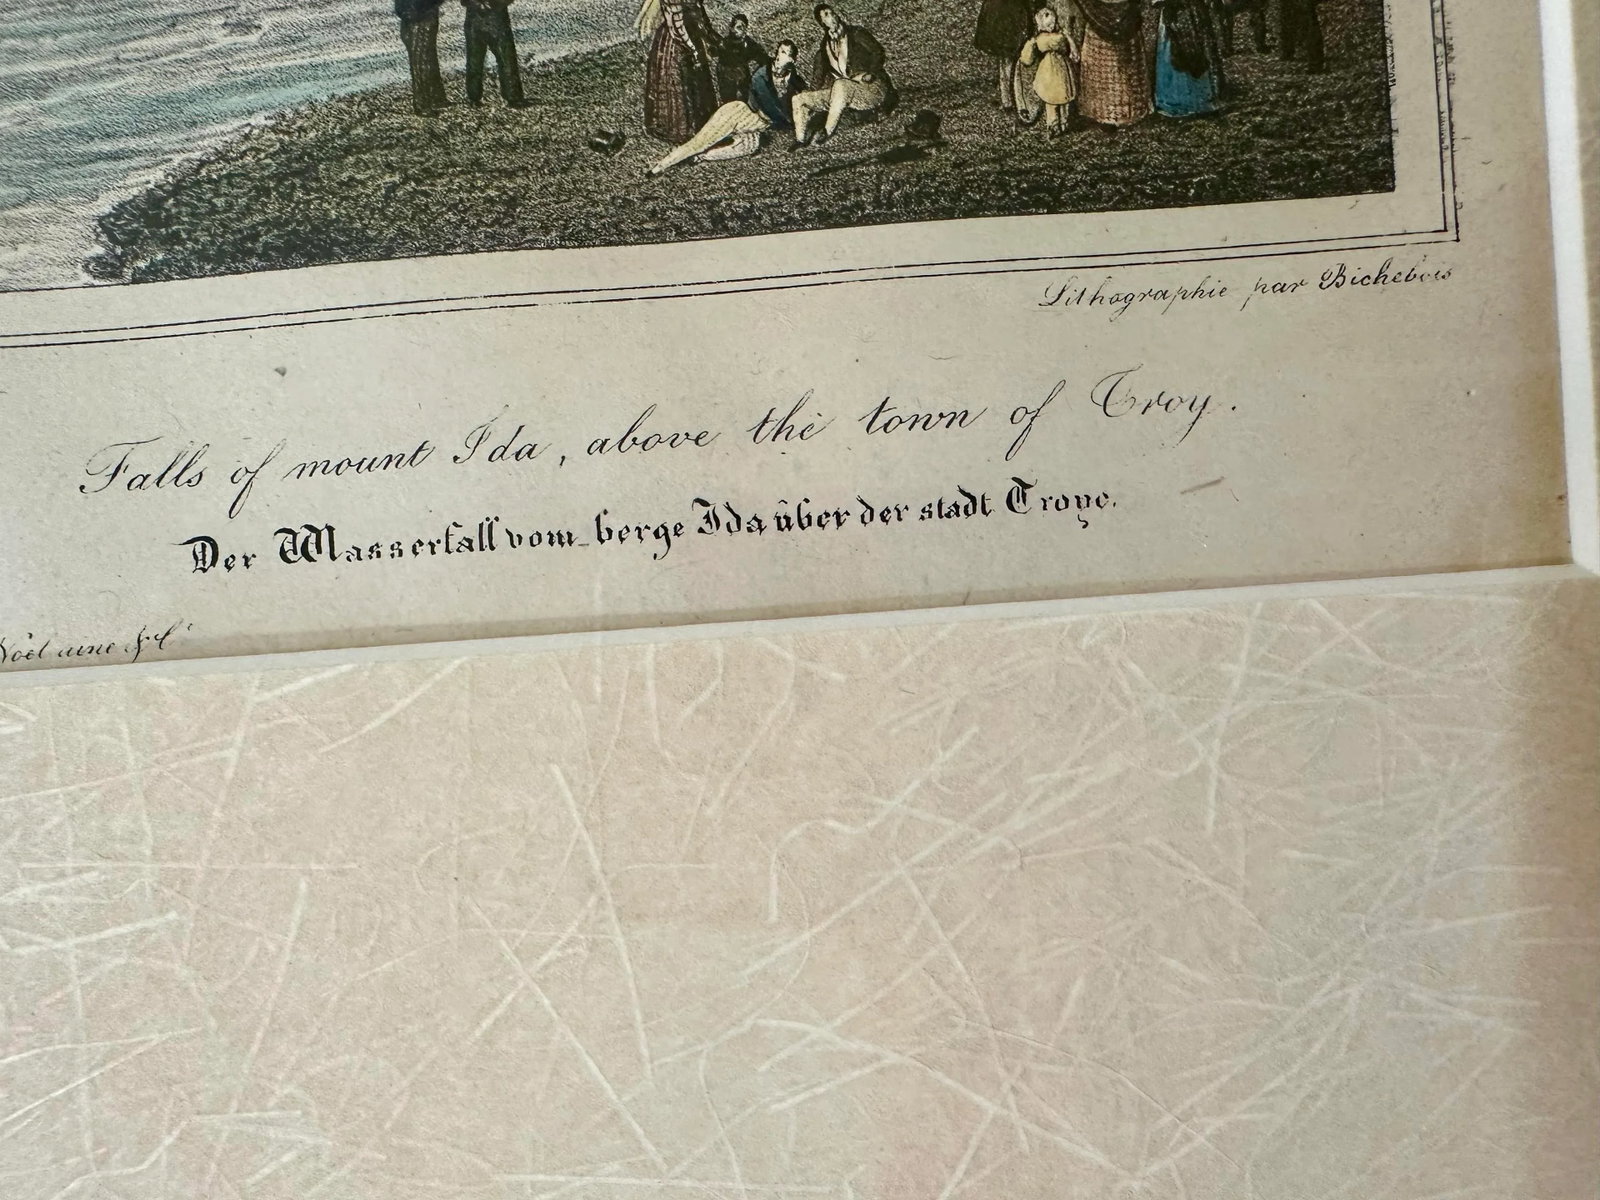 Lithographie par Bichebois
Falls of mount Ida, above the town of Troy.
Der Wasserfall vom berge Ida über der stadt Troye.
Noël aîné & Cie